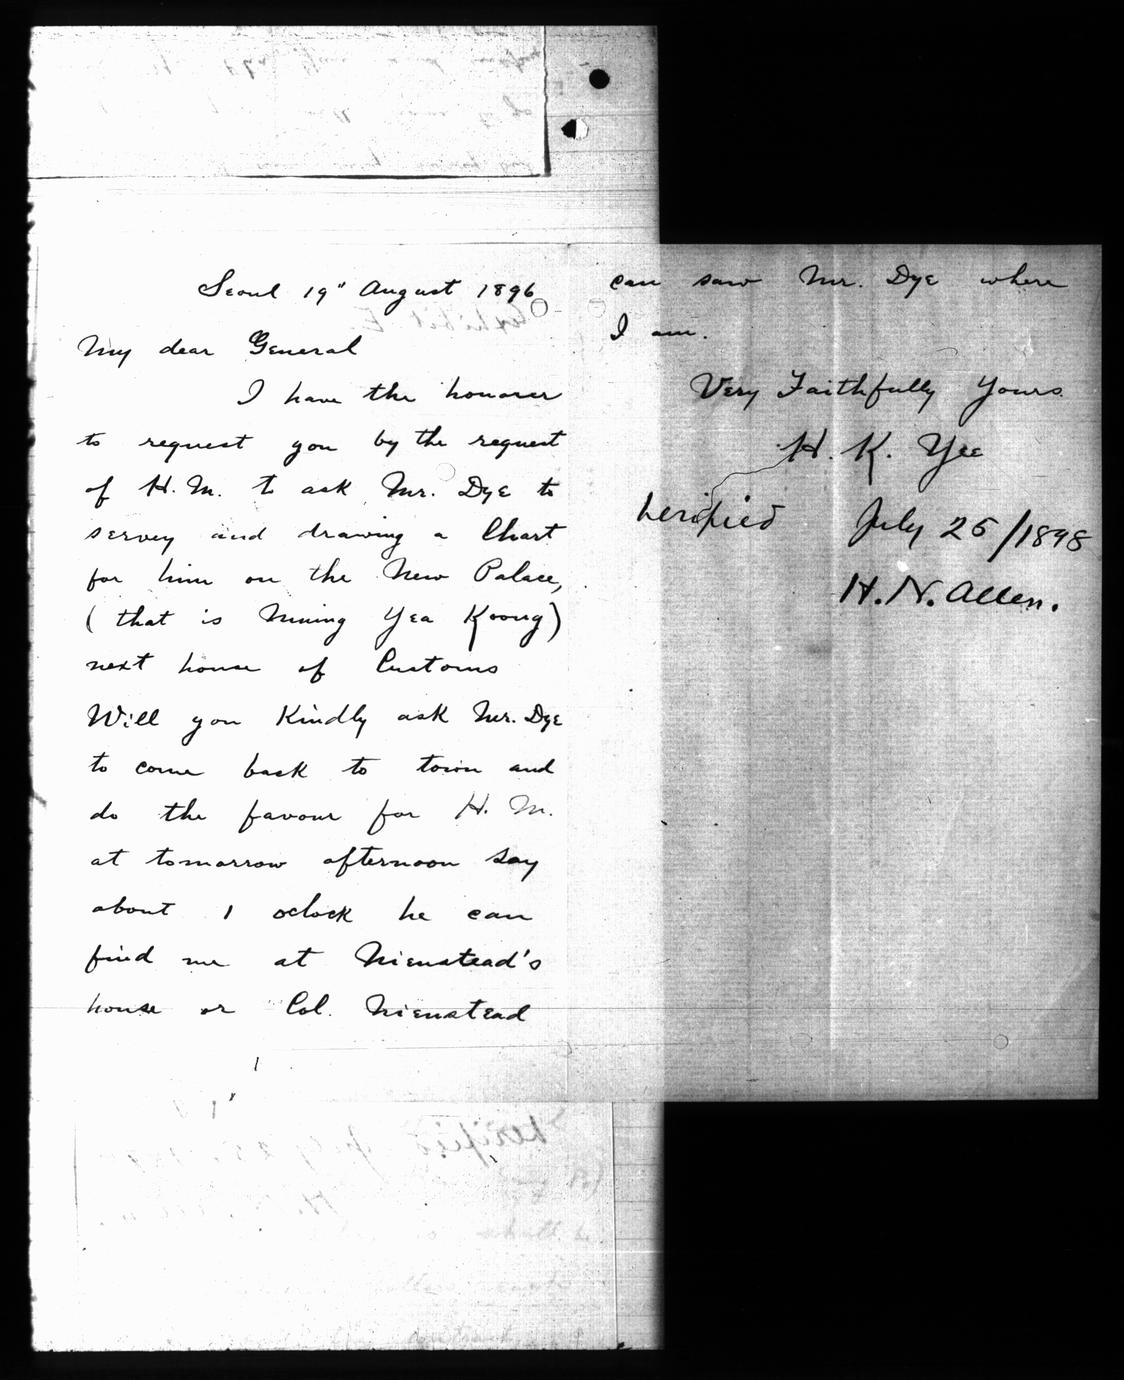 Seoul 19" August 1896
Exhibit E.
My dear General
I have the honorer
to request you by the request
of H. M. to ask Mr. Dye to
servey and drawing a Chart
for him on the New Palace,
( that is Mining Yea Koong)
next house of Customs
Will you Kindly ask Mr. Dye
to come back to town and
do the favour for H. M.
at tomorrow afternoon say
about 1 oclock he can
find me at Nienstead's
house or Col. Nienstead
can saw Mr. Dye where
I am.
Very Faithfully Yours
H. K. Yee
Verified July 25/1898
H. N. Allen.
Verified July 25,